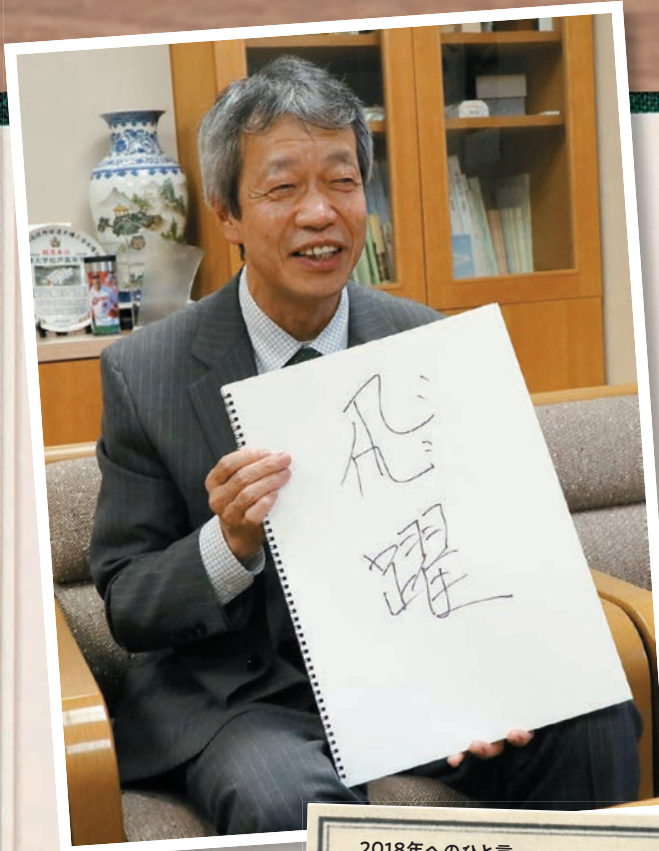 飛
躍
2018年へのひと言